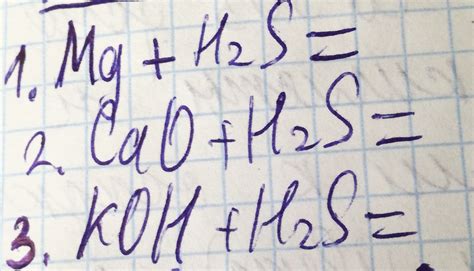 1. Mg + H2S =
2. CaO + H2S =
3. KOH + H2S =